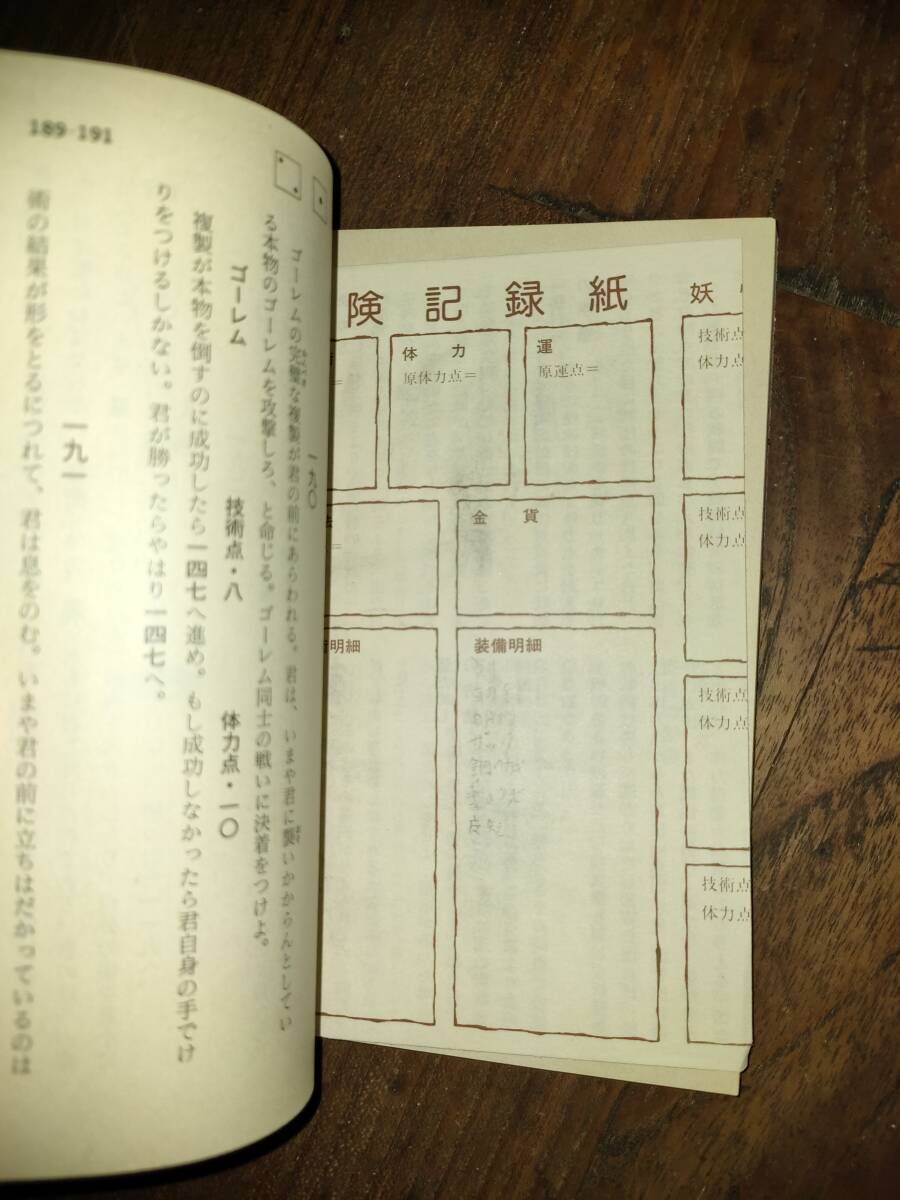 189-191
一九〇
ゴーレムの完璧な複製が君の前にあらわれる。君は、いまや君に襲いかからんとしてい
る本物のゴーレムを攻撃しろ、と命じる。ゴーレム同士の戦いに決着をつけよ。
ゴーレム 技術点・八 体力点・一〇
複製が本物を倒すのに成功したら一四七へ進め。もし成功しなかったら君自身の手でけ
りをつけるしかない。君が勝ったらやはり一四七へ。
一九一
術の結果が形をとるにつれて、君は息をのむ。いまや君の前に立ちはだかっているのは
険記録紙
妖
体力
原体力点＝
運
原運点＝
＝
金貨
明細
装備明細
ザック
技術点
体力点
技術点
体力点
技術点
体力点
技術点
体力点